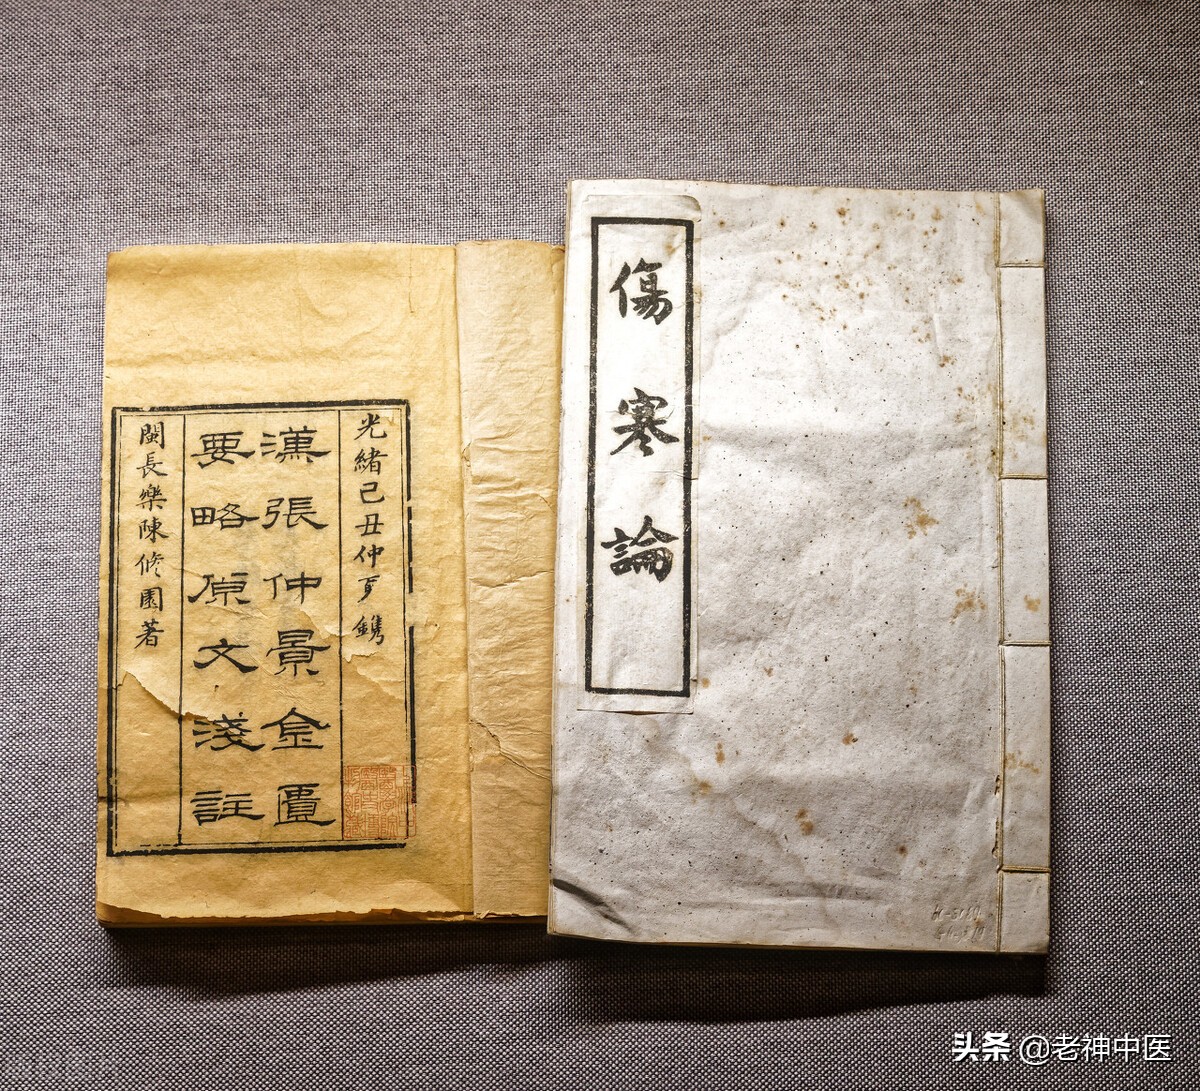 光緒己丑仲夏鐫
漢張仲景金匱
要略原文淺註
閩長樂陳修園著
傷寒論
头条 @老神中医